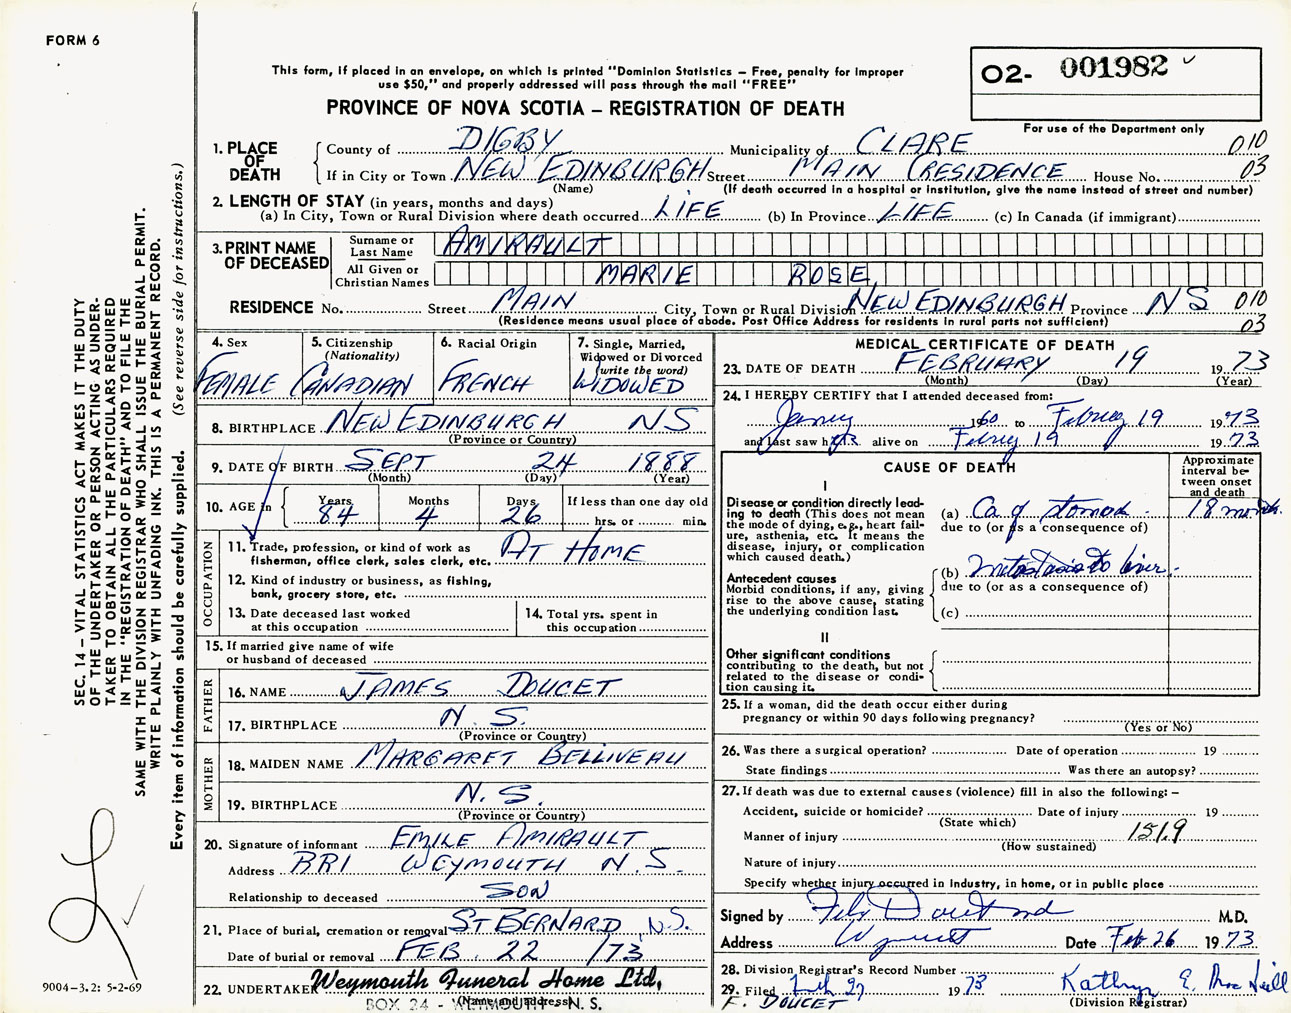 FORM 6
This form, if placed in an envelope, on which is printed "Dominion Statistics – Free, penalty for improper
use $50," and properly addressed will pass through the mail "FREE"
PROVINCE OF NOVA SCOTIA – REGISTRATION OF DEATH
O2- 001982
For use of the Department only
1. PLACE OF DEATH
County of DIGBY Municipality of CLARE 010
If in City or Town NEW EDINBURGH Street MAIN (RESIDENCE House No. 03
(Name) (If death occurred in a hospital or institution, give the name instead of street and number)
2. LENGTH OF STAY (in years, months and days)
(a) In City, Town or Rural Division where death occurred LIFE (b) In Province LIFE (c) In Canada (if immigrant)
3. PRINT NAME OF DECEASED
Surname or Last Name AMIRAULT
All Given or Christian Names MARIE ROSE
RESIDENCE No. Street MAIN City, Town or Rural Division NEW EDINBURGH Province NS 010
(Residence means usual place of abode. Post Office Address for residents in rural parts not sufficient) 03
4. Sex FEMALE
5. Citizenship (Nationality) CANADIAN
6. Racial Origin FRENCH
7. Single, Married, Widowed or Divorced (write the word) WIDOWED
8. BIRTHPLACE NEW EDINBURGH NS
(Province or Country)
9. DATE OF BIRTH SEPT 24 1888
(Month) (Day) (Year)
10. AGE in Years 84 Months 4 Days 26 If less than one day old
hrs. or min.
OCCUPATION
11. Trade, profession, or kind of work as fisherman, office clerk, sales clerk, etc. AT HOME
12. Kind of industry or business, as fishing,
bank, grocery store, etc.
13. Date deceased last worked at this occupation
14. Total yrs. spent in this occupation
15. If married give name of wife
or husband of deceased
FATHER
16. NAME JAMES DOUCET
17. BIRTHPLACE N.S.
(Province or Country)
MOTHER
18. MAIDEN NAME MARGARET BELLIVEAU
19. BIRTHPLACE N.S.
(Province or Country)
20. Signature of informant EMILE AMIRAULT
Address RR1 WEYMOUTH N.S.
Relationship to deceased SON
21. Place of burial, cremation or removal ST BERNARD, N.S.
Date of burial or removal FEB. 22 /73
22. UNDERTAKER Weymouth Funeral Home Ltd,
(Name and address)
BOX 24 - WEYMOUTH N. S.
MEDICAL CERTIFICATE OF DEATH
23. DATE OF DEATH FEBRUARY 19 1973
(Month) (Day) (Year)
24. I HEREBY CERTIFY that I attended deceased from:
1960 to 19 1973
and last saw her alive on 19 1973
CAUSE OF DEATH
Approximate interval between onset and death
I
Disease or condition directly leading to death (This does not mean the mode of dying, e.g., heart failure, asthenia, etc. It means the disease, injury, or complication which caused death.)
(a) Ca of stomach 18 months
due to (or as a consequence of)
Antecedent causes
Morbid conditions, if any, giving rise to the above cause, stating the underlying condition last.
(b) metastasis to liver
due to (or as a consequence of)
(c)
II
Other significant conditions
contributing to the death, but not related to the disease or condition causing it.
25. If a woman, did the death occur either during
pregnancy or within 90 days following pregnancy?
(Yes or No)
26. Was there a surgical operation? Date of operation 19
State findings Was there an autopsy?
27. If death was due to external causes (violence) fill in also the following: –
Accident, suicide or homicide? Date of injury 19
(State which)
Manner of injury 151.9
(How sustained)
Nature of injury
Specify whether injury occurred in industry, in home, or in public place
Signed by M.D.
Address Date Feb 26 1973
28. Division Registrar's Record Number
29. Filed Feb 27 1973 Kathryn E. MacNeill
F. DOUCET (Division Registrar)
SEC. 14 – VITAL STATISTICS ACT MAKES IT THE DUTY
OF THE UNDERTAKER OR PERSON ACTING AS UNDER-
TAKER TO OBTAIN ALL THE PARTICULARS REQUIRED
IN THE "REGISTRATION OF DEATH" AND TO FILE THE
SAME WITH THE DIVISION REGISTRAR WHO SHALL ISSUE THE BURIAL PERMIT.
WRITE PLAINLY WITH UNFADING INK. THIS IS A PERMANENT RECORD.
Every item of information should be carefully supplied. (See reverse side for instructions.)
9004-3.2: 5-2-69